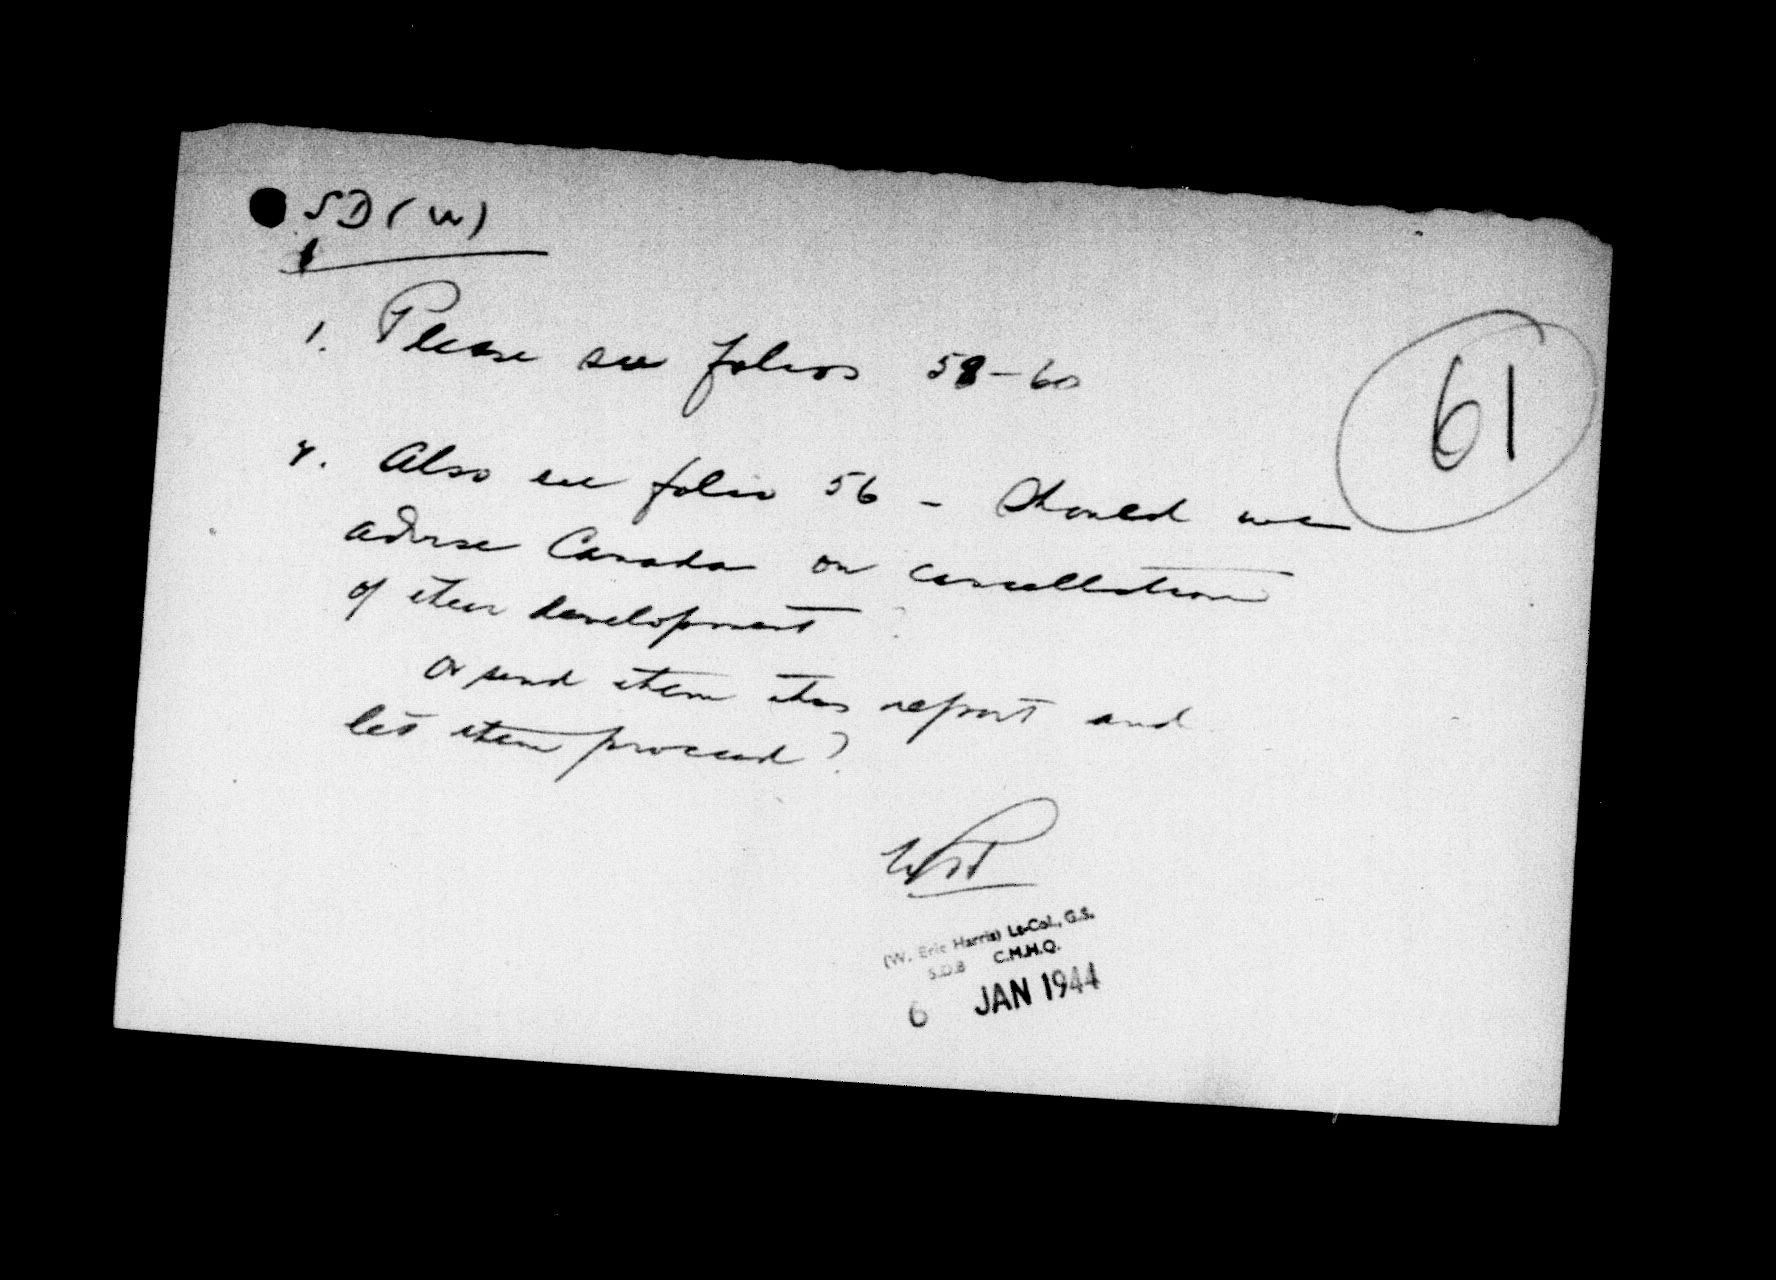 SD(W)
1. Please see folios 58-60
61
2. Also see folio 56 - Should we
advise Canada on cancellation
of their development
or send them this report and
let them proceed?
(W. Eric Harris) Lt-Col., G.S.
S.D.B C.M.H.Q.
6 JAN 1944